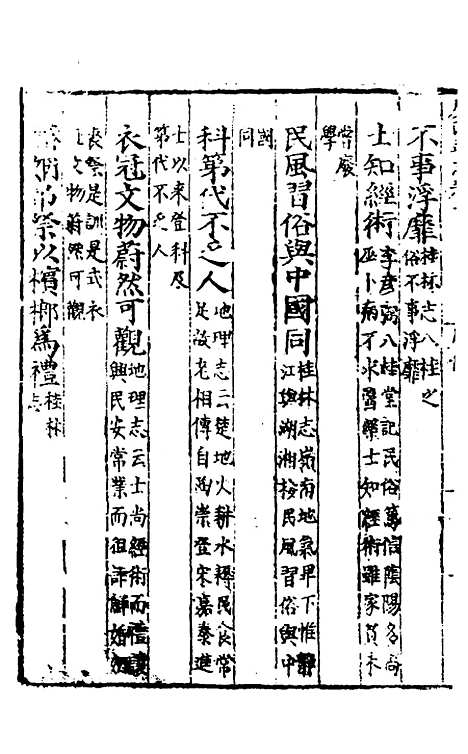 不事浮靡桂林志八桂之俗不事浮靡
士知經術李彥弼八桂堂記民俗篤信陰陽多尚巫卜病不求醫藥士知經術雖家貧未
嘗廢學
民風習俗與中國同桂林志嶺南地氣卑下惟靜江與湖湘接民風習俗與中
州同
科第代不乏人地理志云楚地火耕水耨民食常足故老相傳自崇登宋嘉泰進
士以來登科及第代不乏人
衣冠文物蔚然可觀地理志云士尚經術而禮讓興民安常業而詐鮮婚
喪祭是訓是式衣冠文物蔚然可觀
祭以檳榔為禮桂林志